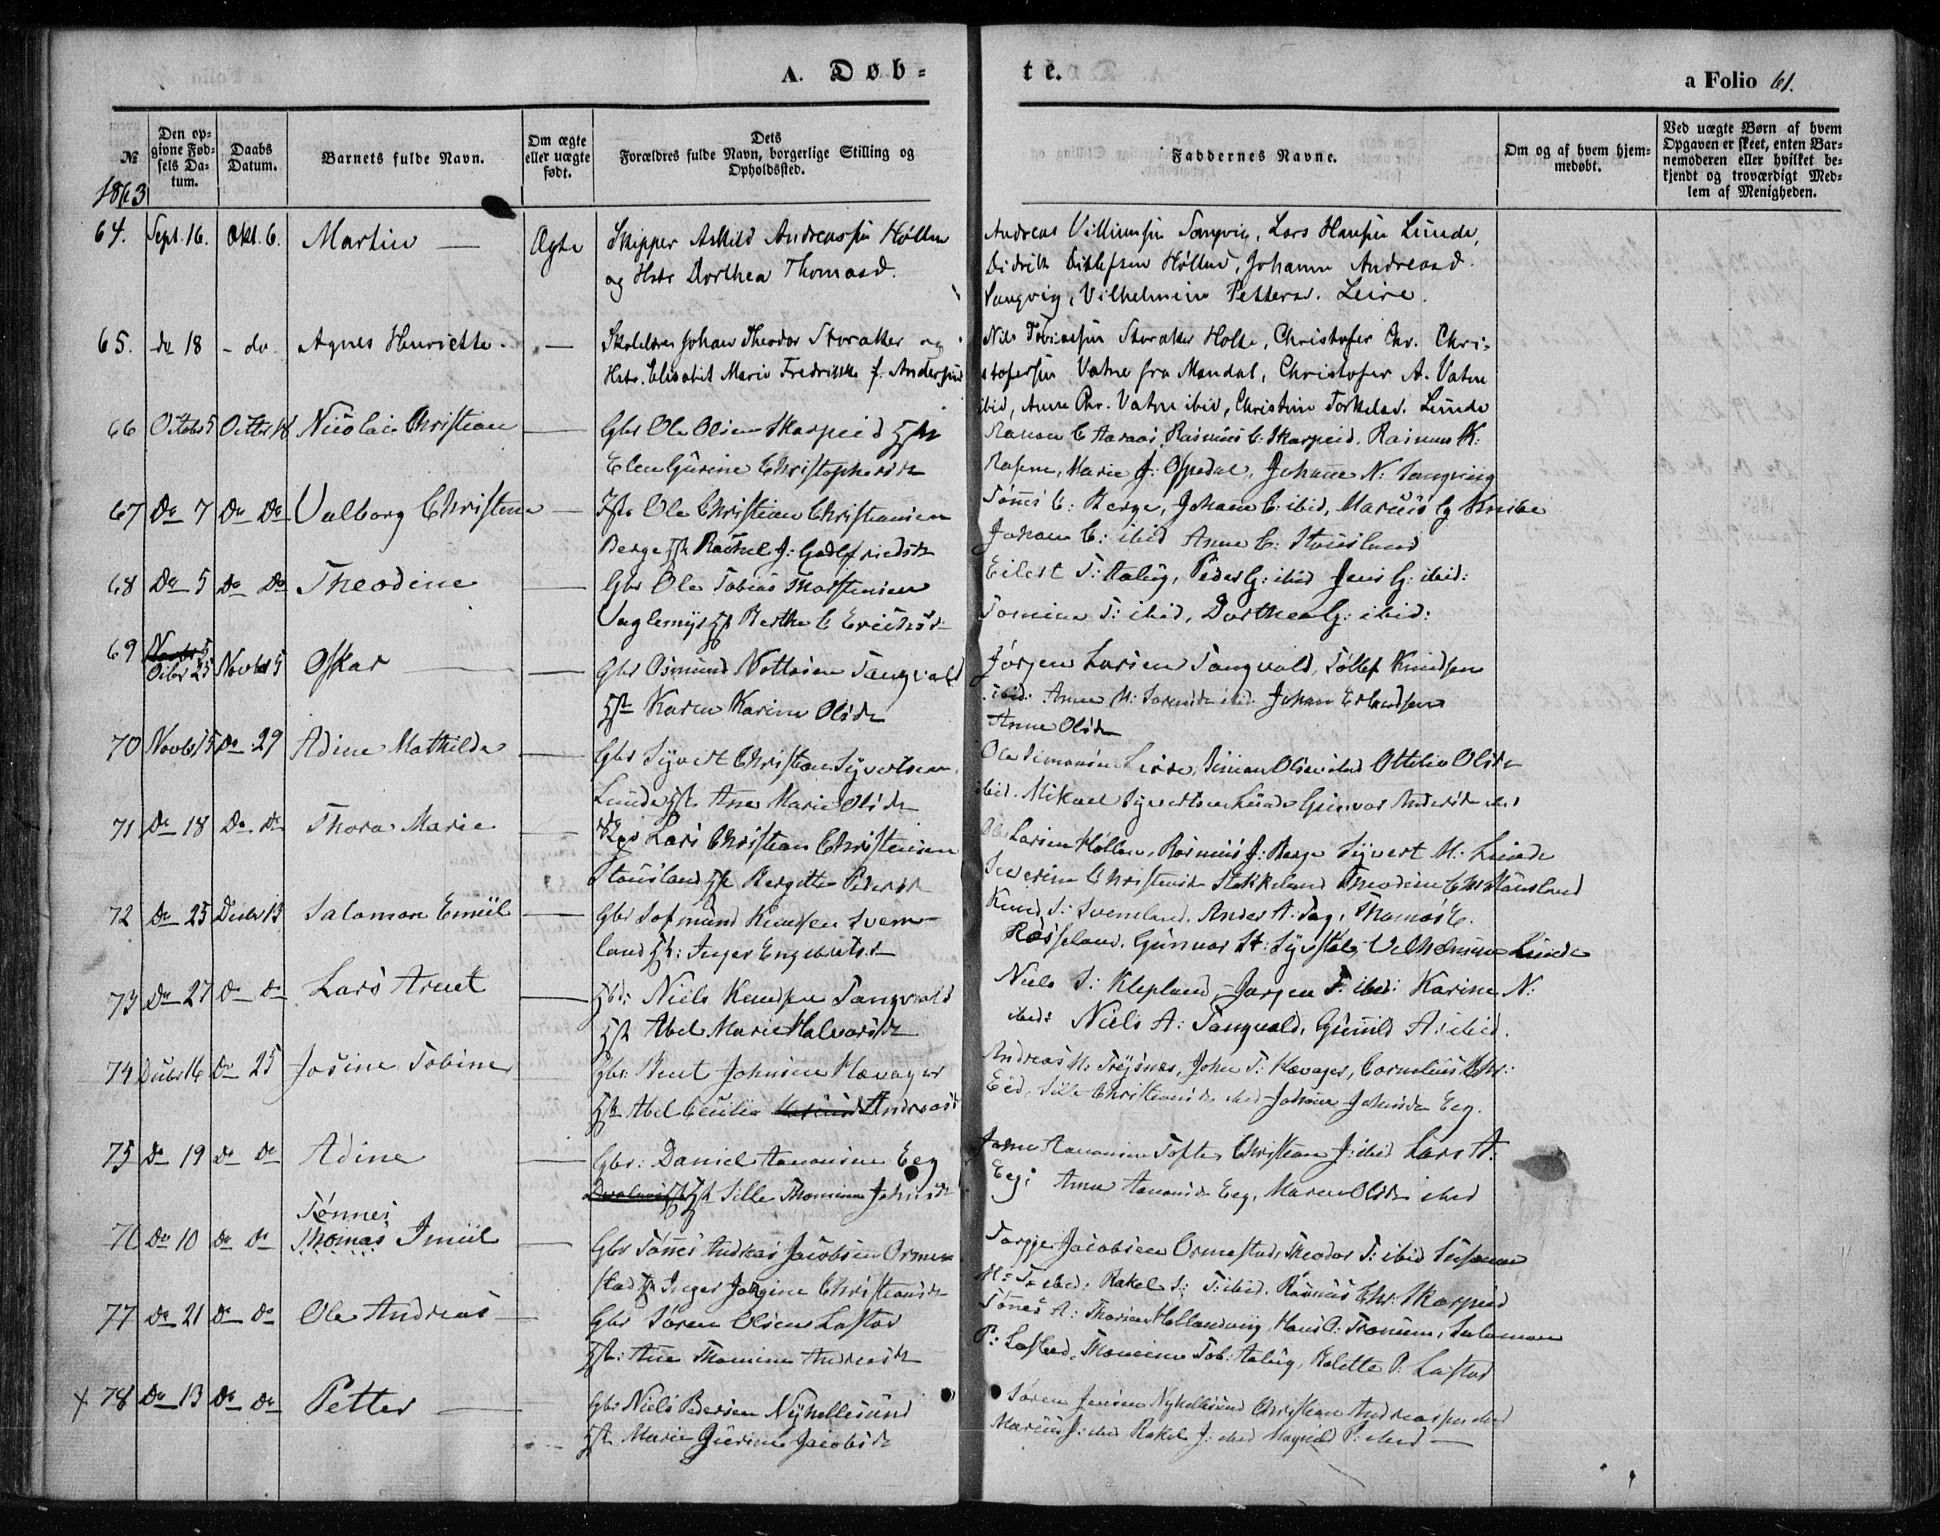 A. Døb-
te.
a Folio 61.
№
Den op-
givne Fød-
sels Da-
tum.
Daabs
Datum.
Barnets fulde Navn.
Om ægte
eller uægte
født.
Dets
Forældres fulde Navn, borgerlige Stilling og
Opholdssted.
Faddernes Navne.
Om og af hvem hjem-
medøbt.
Ved uægte Børn af hvem
Opgaven er skeet, enten Bar-
nemoderen eller hvilket be-
kjendt og troværdigt Med-
lem af Menigheden.
1863
64. Sept. 16. Okt. 6. Martin — Ægte Skipper Askild Andreassen Høllen
og Hstr Dorthea Thomasd.
Andreas Villumsen Sangvig, Lars Hansen Lunde,
Didrik Ditlefsen Høllen, Johanne Andreasd.
Sangvig, Vilhelmine Pettersd. Leire.
65. do 18 - do. Agnes Henriette. — Skolelærer Johan Theodor Storaker og
Hstr. Elisabet Marie Fredrikke f. Andersen
Nils Storaker Holte, Christofer Chr. Chri-
stofersen Vatne fra Mandal, Christofer A. Vatne
ibid, Anne Chr. Vatne ibid, Christine Torkelsd. Lunde
66 Octobr 5 Octbr 18 Nicolai Christian — Gbr Ole Olsen Skarpeid Hst
Elen Gurine Christophersdr
C Aaraas, Rasmus C: Skarpeid, Rasmus K:
Marie J: Ospedal, Johanne N: Sangvig
67 Do 7 Do Do Valborg Christine — Ole Christian Christiansen
Berge Hst Rachel J: Godtfriedsdr
Tønnes C: Berge, Johanne C: ibid, Marcus G Knibe
Johanne C: ibid Anne C: Stousland
68 Do 5 Do Do Theodine — Gbr Ole Tobias Thorstensen
Uglemyr Hst Berthe C Ericksdr
Eilert T: Aaling, Peder G: ibid Jens G: ibid:
Tomine T: ibid, Dorthea G: ibid:
69 Novbr 5
Octbr 25 Novbr 5 Oskar — Gbr Osmund Nottosen Tangvald
Hst Karen Karine Olsdr
Jørgen Larsen Tangvald, Tollef Knudsen
ibid: Anne M: ibid Johan Erlandsen
Anne Olsdr
70 Novbr 15 Do 29 Adine Mathilde — Gbr Syvert Christian Syvertsen
Lunde Hst Ane Marie Olsdr
Ole Simonsen Leire, Simon Olsen ibid Ottilie Olsdr
ibid. Mikael Syvertsen Lunde Gunvor Andersdr ibid
71 Do 18 Do Do Thora Marie — Lars Christian Christensen
Stousland Hst Bergitte Pedersdr
Ole Larsen Høllen, Rasmus J: Berge Syvert M: Lunde
Severine Christensdr Stokkeland Theodine Chr Stousland
72 Do 25 Decbr 13 Salomon Emiil — Gbr Sofmund Knudsen Sveen-
land Hst: Inger Engebretsdr
Knud S: Sveenland, Anders A: Fag, Thomas E.
Røsseland, Gunvor St: Syvstøl, Vilhelmine Lunde
73 Do 27 Do Do Lars Arent — Gbr: Niels Knudsen Tangvald
Hst Abel Marie Halvorsdr
Niels S: Klepland, Jørgen T: ibid: Karine N:
ibid: Niels A: Tangvald, Gunild A: ibid.
74 Decbr 16 Do 25 Josine Tobine — Gbr: Bent Johnsen Havager
Hst Abel Cecilie Andreasd
Andreas M: Trøjsnes, John T: Havager, Cornelius Chr:
Eeg, Sille Christiansdr ibid Johanne Johnsdr Eeg.
75 Do 19 Do Do Adine — Gbr: Daniel Aanonsen Eeg
Hst Sille Thomine Johnsdr
Aanonsen Tofte, Christian J: ibid Lars A.
Eeg; Anne Aanonsdr Eeg, Maren Olsdr ibid
76 Do 10 Do Do Tønnes
Thomas Imiil — Gbr Tønnes Andreas Jacobsen Orme-
stad Hst Inger Jorgine Christiansdr
Torgje Jacobsen Ormestad, Theodor T: ibid Susanne
M: T: ibid. Rakel S: T: ibid. Rasmus Chr: Skarpeid
77 Do 21 Do Do Ole Andreas — Gbr Søren Olsen Lastad
Hst: Ane Thomine Andreasdr
Tønnes A: Hellandvig, Hans P: Salomon
P: Lastad, Thomine Tob: Aaling, Kolette P: Lastad
x 78 Do 13 Do Do Petter — Gbr Niels Pedersen Nyhellesund
Hst Marie Gurine Jacobsdr
Søren Jensen Nyhellesund Christian Andreassen ibid
Marcus J: ibid Rakel J: ibid Magnild P: ibid —